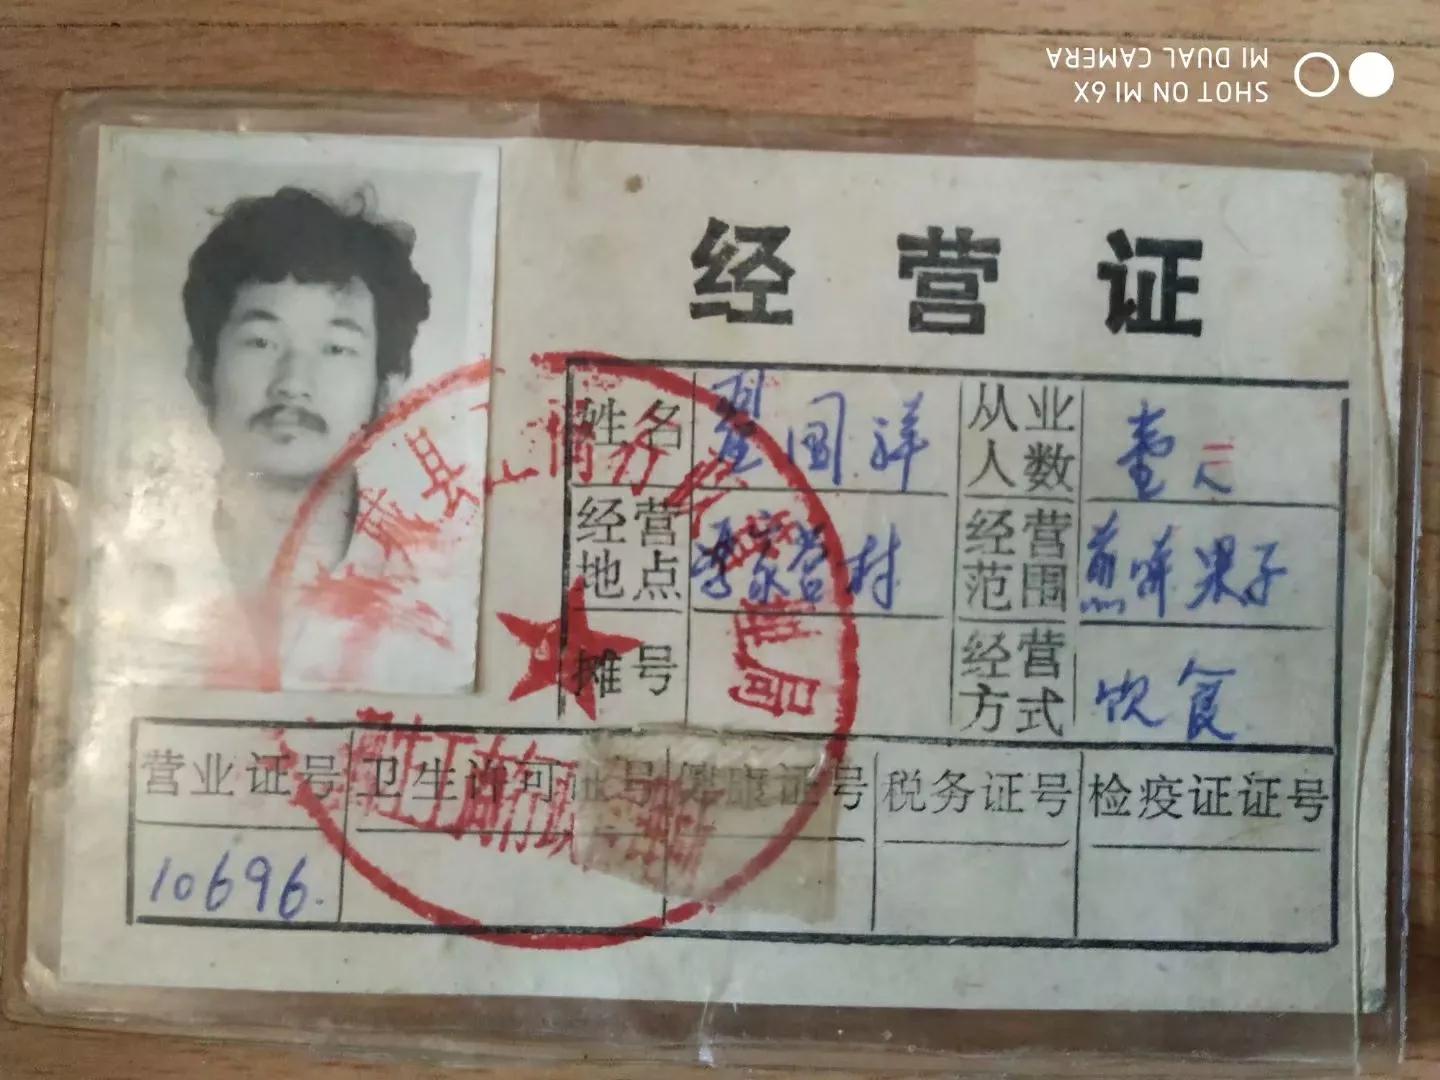 SHOT ON MI 6X
MI DUAL CAMERA
经营证
姓名 国祥 从业人数 壹人
经营地点 家营村 经营范围 煎饼果子
摊号 经营方式 饮食
营业证号 卫生许可证号 健康证号 税务证号 检疫证证号
10696.
县工商行政管理局